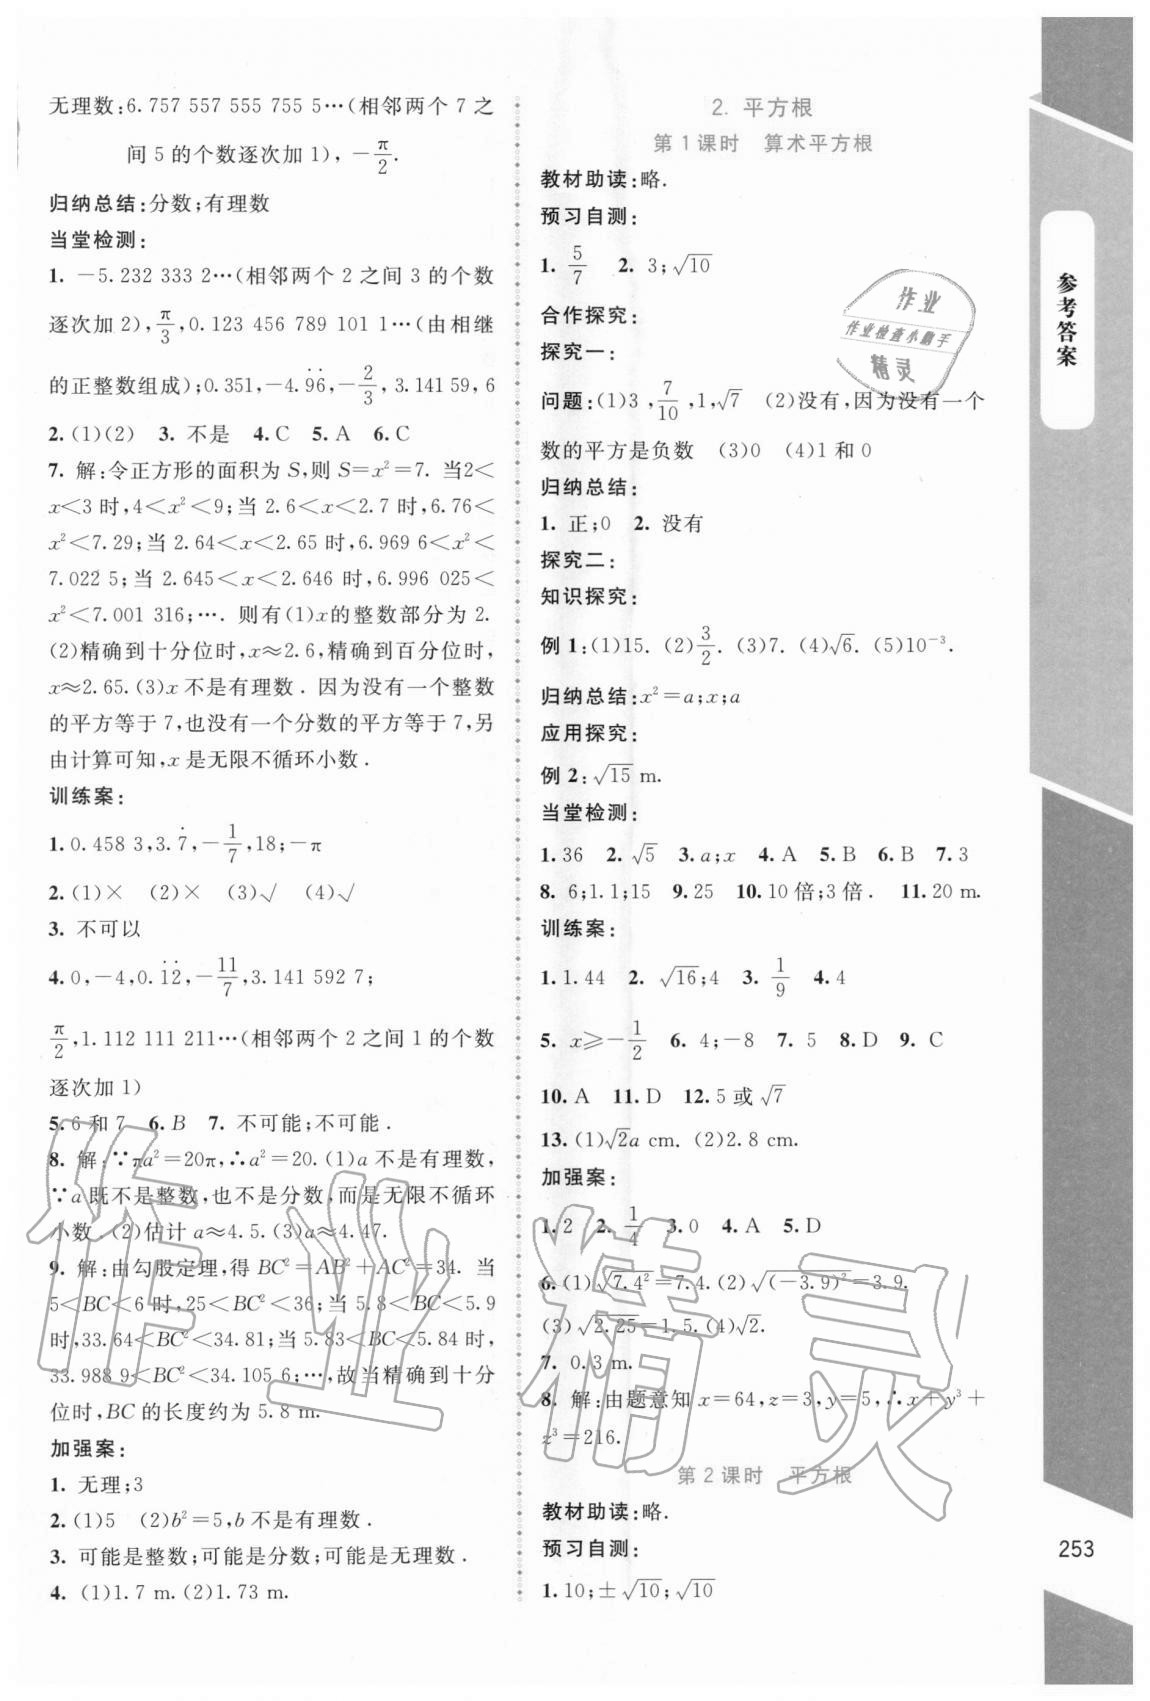 无理数:6.757 557 555 755 5…(相邻两个 7 之
间 5 的个数逐次加 1),-π/2.
归纳总结:分数;有理数
当堂检测:
1. -5.232 333 2…(相邻两个 2 之间 3 的个数
逐次加 2),π/3,0.123 456 789 101 1…(由相继
的正整数组成);0.351,-4.9̇6̇,-2/3,3.141 59,6
2.(1)(2) 3. 不是 4.C 5.A 6.C
7. 解:令正方形的面积为 S,则 S=x²=7. 当2<
x<3 时,4<x²<9;当 2.6<x<2.7 时,6.76<
x²<7.29;当 2.64<x<2.65 时,6.969 6<x²<
7.022 5;当 2.645<x<2.646 时,6.996 025<
x²<7.001 316;…. 则有(1)x的整数部分为 2.
(2)精确到十分位时,x≈2.6,精确到百分位时,
x≈2.65.(3)x 不是有理数. 因为没有一个整数
的平方等于 7,也没有一个分数的平方等于 7,另
由计算可知,x 是无限不循环小数.
训练案:
1.0.458 3,3.7̇,-1/7,18;-π
2.(1)× (2)× (3)√ (4)√
3. 不可以
4.0,-4,0.1̇2̇,-11/7,3.141 592 7;
π/2,1.112 111 211…(相邻两个 2 之间 1 的个数
逐次加 1)
5.6 和 7 6.B 7. 不可能;不可能.
8. 解:∵πa²=20π,∴a²=20.(1)a 不是有理数,
∵a 既不是整数,也不是分数,而是无限不循环
小数.(2)估计 a≈4.5.(3)a≈4.47.
9. 解:由勾股定理,得 BC²=AB²+AC²=34. 当
5<BC<6 时,25<BC²<36;当 5.8<BC<5.9
时,33.64<BC²<34.81;当 5.83<BC<5.84 时,
33.988 9<BC²<34.105 6;…,故当精确到十分
位时,BC 的长度约为 5.8 m.
加强案:
1. 无理;3
2.(1)5 (2)b²=5,b 不是有理数.
3. 可能是整数;可能是分数;可能是无理数.
4. (1)1.7 m.(2)1.73 m.
2. 平方根
第 1 课时 算术平方根
教材助读:略.
预习自测:
1. 5/7 2. 3;√10
合作探究:
探究一:
问题:(1)3,7/10,1,√7 (2)没有,因为没有一个
数的平方是负数 (3)0 (4)1 和 0
归纳总结:
1. 正;0 2. 没有
探究二:
知识探究:
例 1:(1)15. (2)3/2. (3)7. (4)√6. (5)10⁻³.
归纳总结:x²=a;x;a
应用探究:
例 2:√15 m.
当堂检测:
1.36 2.√5 3.a;x 4.A 5.B 6.B 7.3
8. 6;1.1;15 9.25 10.10 倍;3 倍. 11.20 m.
训练案:
1.1.44 2. √16;4 3. 1/9 4.4
5. x≥-1/2 6. 4;-8 7. 5 8.D 9. C
10.A 11.D 12.5 或√7
13.(1)√2a cm. (2)2.8 cm.
加强案:
1.2 2. 1/4 3.0 4.A 5.D
6.(1)√7.4²=7.4.(2)√(-3.9)²=3.9.
(3)√2.25=1.5.(4)√2.
7. 0.3 m.
8. 解:由题意知 x=64,z=3,y=5,∴x+y³+
z³=216.
第 2 课时 平方根
教材助读:略.
预习自测:
1.10;±√10;√10
参考答案
253
作业
作业检查小帮手
精灵
作业精灵